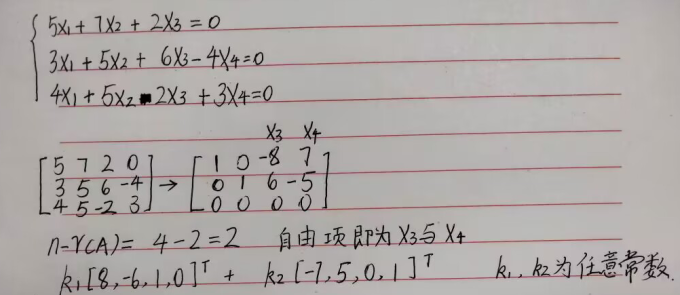 5x₁ + 7x₂ + 2x₃ = 0
3x₁ + 5x₂ + 6x₃ - 4x₄ = 0
4x₁ + 5x₂ - 2x₃ + 3x₄ = 0
x₃ x₄
[5 7 2 0] [1 0 -8 7]
[3 5 6 -4] → [0 1 6 -5]
[4 5 -2 3] [0 0 0 0]
n-r(A) = 4-2 = 2 自由项即为x₃与x₄
k₁[8,-6,1,0]ᵀ + k₂[-7,5,0,1]ᵀ k₁、k₂为任意常数.